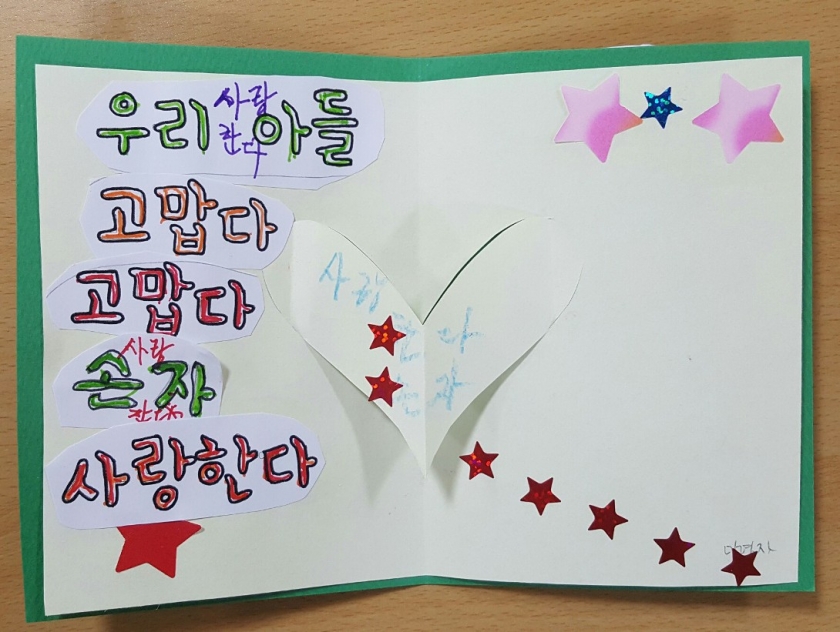 우리 아들
사랑
한다
고맙다
고맙다
손자
사랑
한다
사랑한다
사랑
한다